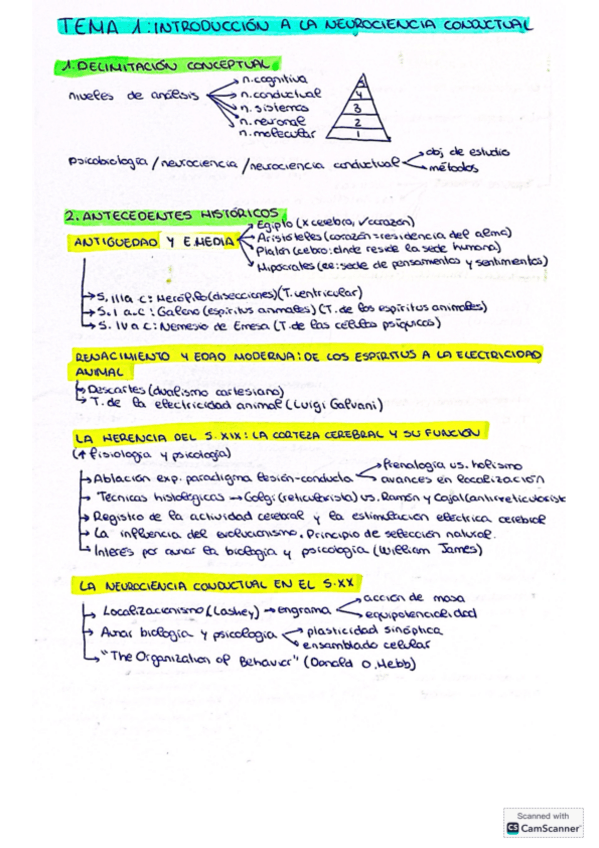 TEMA 1: INTRODUCCIÓN A LA NEUROCIENCIA CONDUCTUAL
1. DELIMITACIÓN CONCEPTUAL
niveles de análisis
n. cognitiva
n. conductual
n. sistemas
n. neuronal
n. molecular
5
4
3
2
1
psicobiología / neurociencia / neurociencia conductual
obj de estudio
métodos
2. ANTECEDENTES HISTÓRICOS
ANTIGUEDAD Y E. MEDIA
Egipto (x cerebro, ✓corazón)
Aristóteles (corazón = residencia del alma)
Platón (cebro: dnde reside la sede humana)
Hipócrates (ce: sede de pensamientos y sentimientos)
S. III a C: Herófilo (disecciones) (T. ventricular)
S. I a.C: Galeno (espíritus animales) (T. de los espíritus animales)
S. IV a C: Nemesio de Emesa (T. de las células psíquicas)
RENACIMIENTO Y EDAD MODERNA: DE LOS ESPÍRITUS A LA ELECTRICIDAD
ANIMAL
Descartes (dualismo cartesiano)
T. de la electricidad animal (Luigi Galvani)
LA HERENCIA DEL S. XIX: LA CORTEZA CEREBRAL Y SU FUNCIÓN
(↑ fisiología y psicología)
Ablación exp. paradigma lesión-conducta
frenología vs. holismo
avances en localización
Técnicas histológicas → Golgi (reticularista) vs. Ramón y Cajal (antirreticularist
Registro de la actividad cerebral y la estimulación eléctrica cerebral
La influencia del evolucionismo. Principio de selección natural.
Interés por aunar la biología y psicología (William James)
LA NEUROCIENCIA CONDUCTUAL EN EL S. XX
Localizacionismo (Lashley) → engrama
acción de masa
equipotencialidad
Aunar biología y psicología
plasticidad sináptica
ensamblado celular
"The Organization of Behavior" (Donald O. Hebb)
Scanned with
CS CamScanner